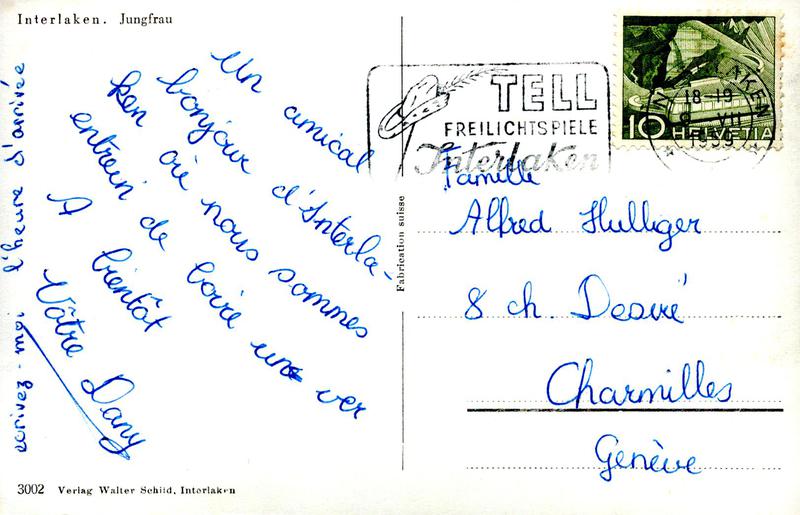 Interlaken. Jungfrau
Un amical
bonjour d'Interla-
ken où nous sommes
entrein de boire une ver
A bientôt
Vôtre Dany
ecrivez-moi l'heure d'arrivée
3002 Verlag Walter Schild, Interlaken
Fabrication suisse
TELL
FREILICHTSPIELE
Interlaken
18-19
VII
1959
10 HELVETIA
Famille
Alfred Hulliger
8 ch. Desiré
Charmilles
Genève